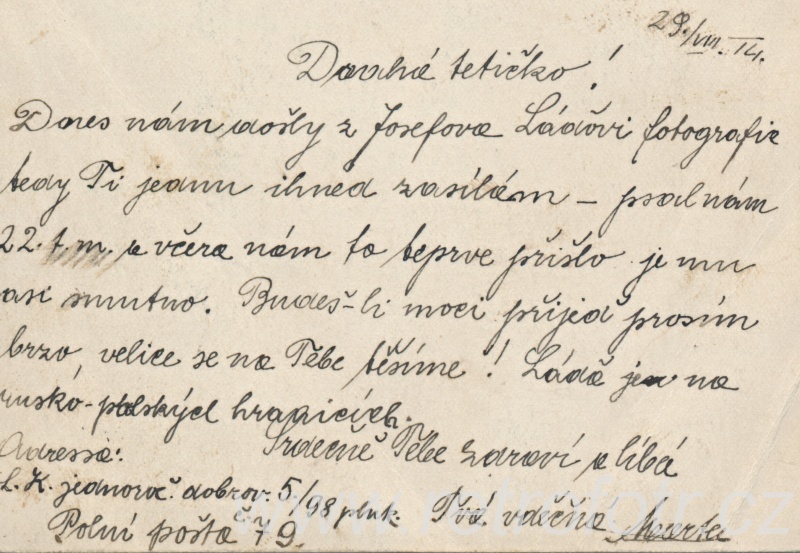 29./VIII. 14.
Drahá tetičko!
Dnes nám došly z Josefova Láďovi fotografie
tedy Ti jednu ihned zasílám – psal nám
22. t. m. a včera nám to teprve přišlo je mu
asi smutno. Budeš-li moci přijeď prosím
brzo, velice se na Tebe těšíme! Láďa je na
rusko-polských hranicích.
Srdečně Tebe zdraví a líbá
Adressa:
L. K. jednoroč. dobrov. 5/98 pluk
Tvá vděčná Marta
Polní pošta č. 79.